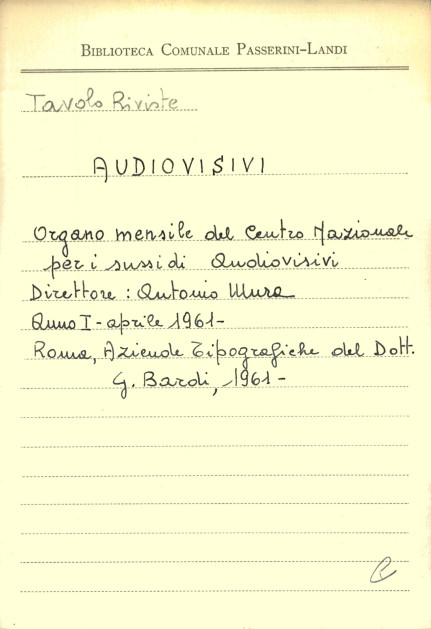 BIBLIOTECA COMUNALE PASSERINI-LANDI
Tavolo Riviste
AUDIOVISIVI
Organo mensile del Centro Nazionale
per i sussidi Audiovisivi
Direttore : Antonio Mura
Anno I - aprile 1961-
Roma, Aziende Tipografiche del Dott.
G. Bardi, 1961-